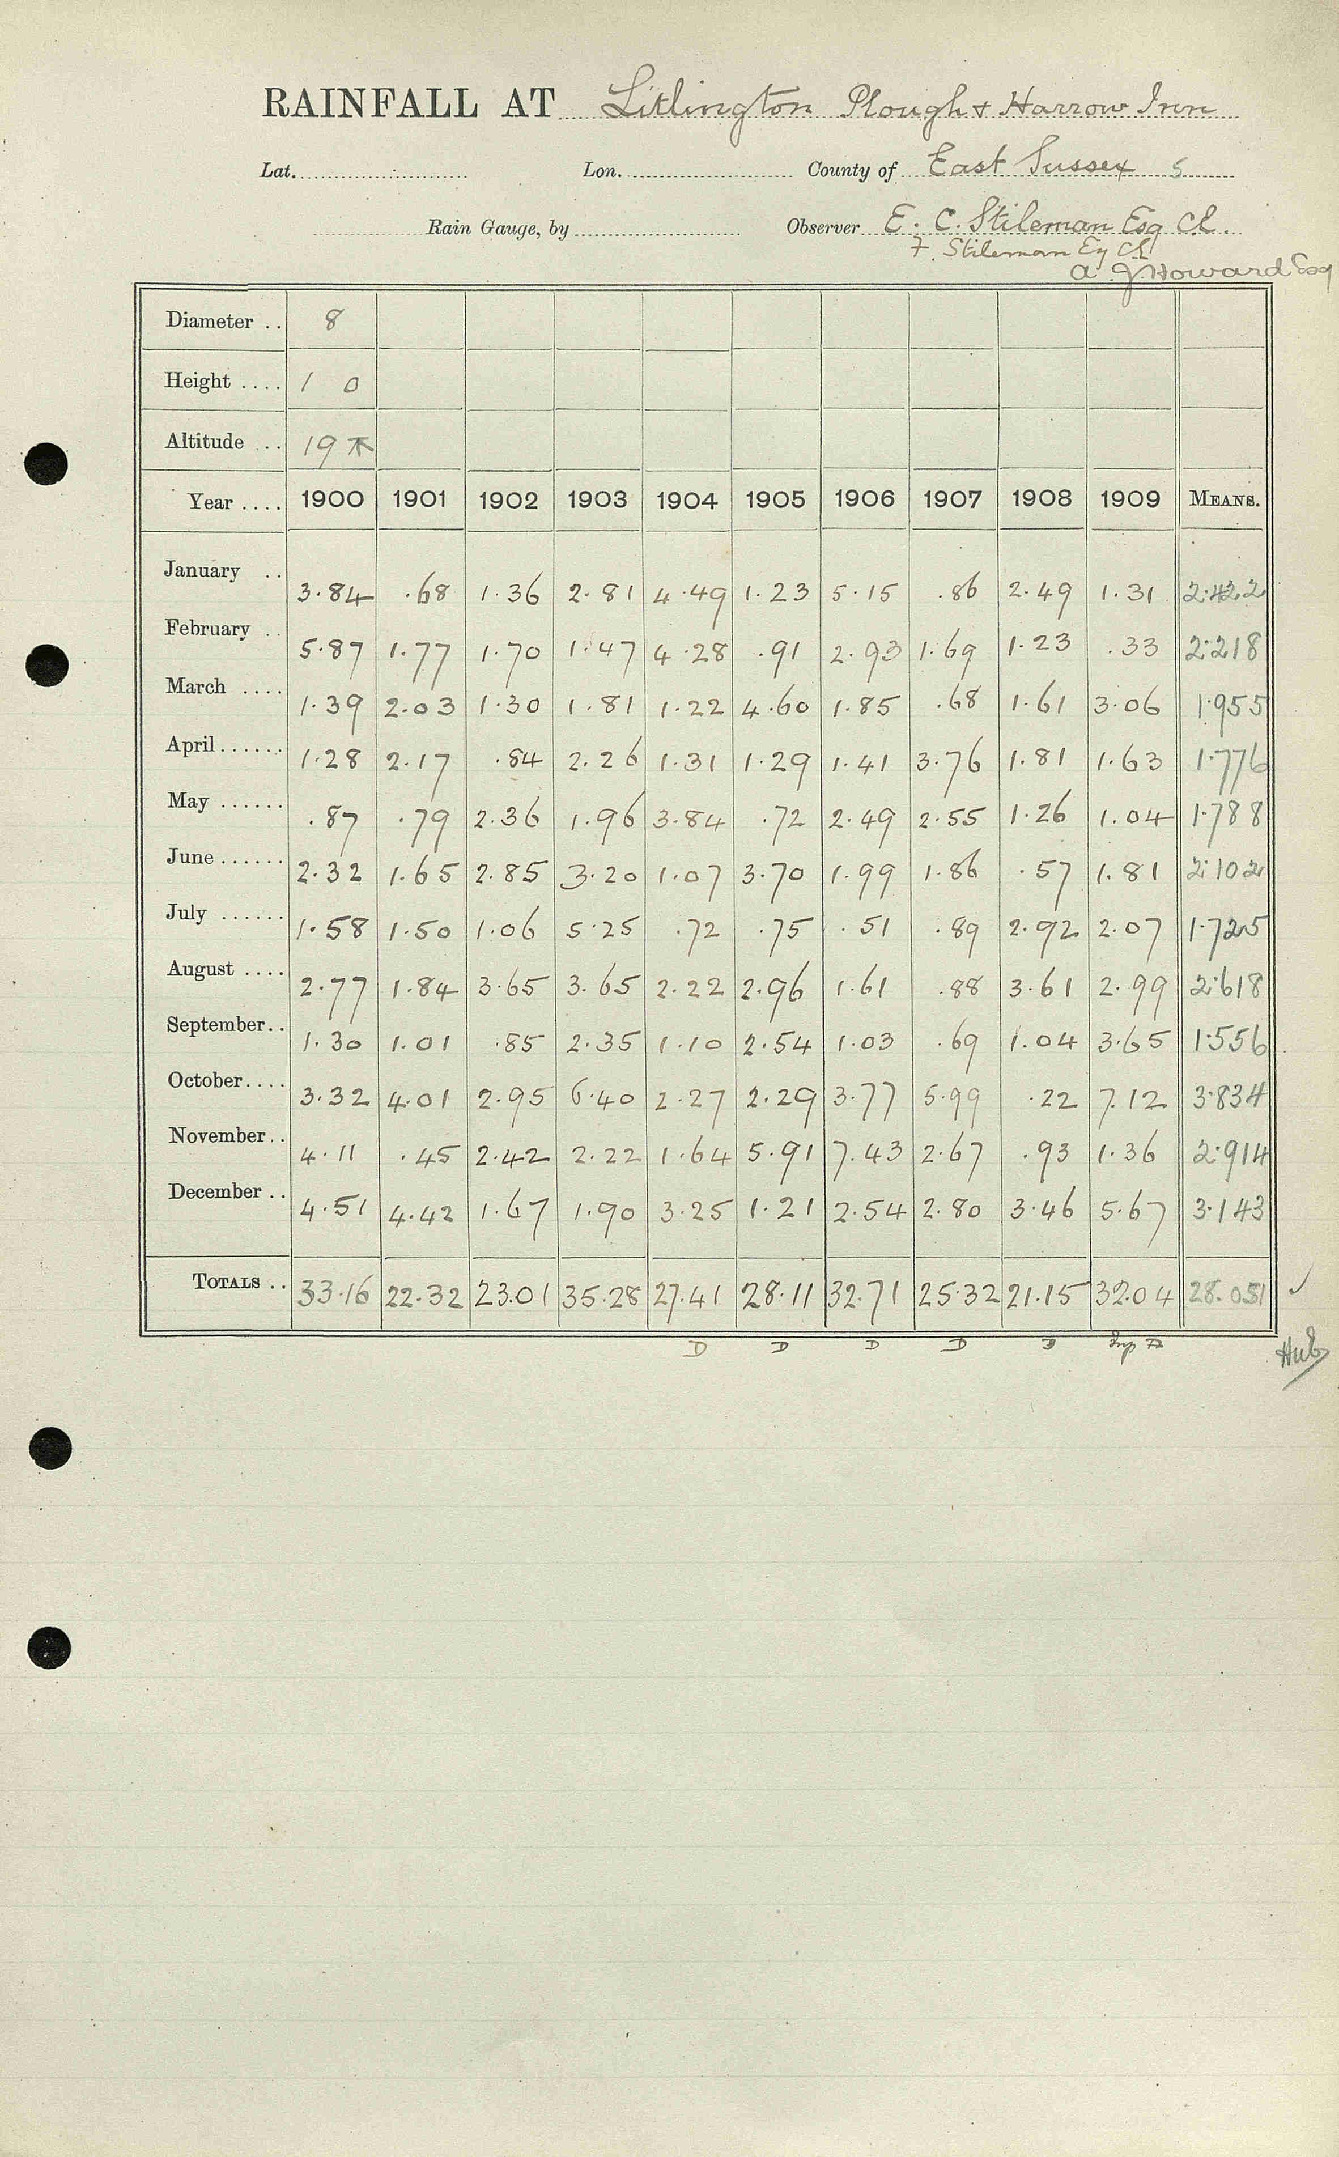 RAINFALL AT Litlington Plough & Harrow Inn
Lat. Lon. County of East Sussex 5
Rain Gauge, by Observer E. C. Stileman Esq CE.
F. Stileman Esq CE
A J Howard Esq
Diameter .. 8
Height .... 1 0
Altitude ... 19
Year .... 1900 1901 1902 1903 1904 1905 1906 1907 1908 1909 MEANS.
January .. 3.84 .68 1.36 2.81 4.49 1.23 5.15 .86 2.49 1.31 2.422
February .. 5.87 1.77 1.70 1.47 4.28 .91 2.93 1.69 1.23 .33 2.218
March .... 1.39 2.03 1.30 1.81 1.22 4.60 1.85 .68 1.61 3.06 1.955
April ...... 1.28 2.17 .84 2.26 1.31 1.29 1.41 3.76 1.81 1.63 1.776
May ...... .87 .79 2.36 1.96 3.84 .72 2.49 2.55 1.26 1.04 1.788
June ...... 2.32 1.65 2.85 3.20 1.07 3.70 1.99 1.86 .57 1.81 2.102
July ...... 1.58 1.50 1.06 5.25 .72 .75 .51 .89 2.92 2.07 1.725
August .... 2.77 1.84 3.65 3.65 2.22 2.96 1.61 .88 3.61 2.99 2.618
September.. 1.30 1.01 .85 2.35 1.10 2.54 1.03 .69 1.04 3.65 1.556
October.... 3.32 4.01 2.95 6.40 2.27 2.29 3.77 5.99 .22 7.12 3.834
November.. 4.11 .45 2.42 2.22 1.64 5.91 7.43 2.67 .93 1.36 2.914
December .. 4.51 4.42 1.67 1.90 3.25 1.21 2.54 2.80 3.46 5.67 3.143
TOTALS .. 33.16 22.32 23.01 35.28 27.41 28.11 32.71 25.32 21.15 32.04 28.051
D D D D D D